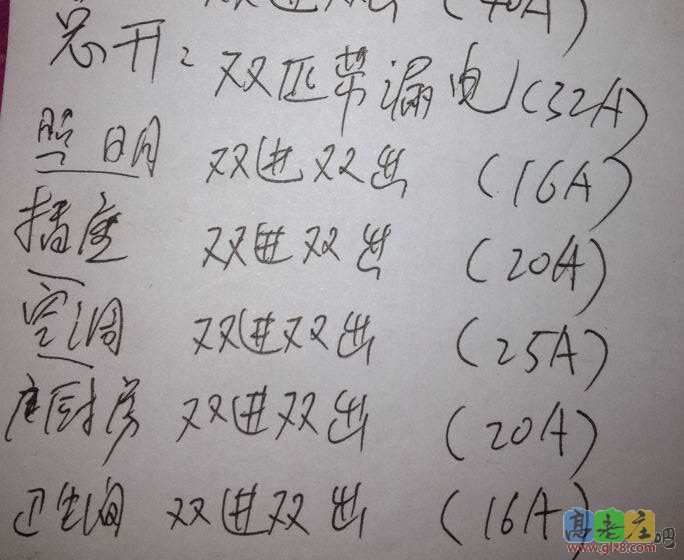 双进双出 (40A)
总开: 双匹带漏电 (32A)
照明 双进双出 (16A)
插座 双进双出 (20A)
空调 双进双出 (25A)
厨房 双进双出 (20A)
卫生间 双进双出 (16A)
高老庄吧
www.glz8.com